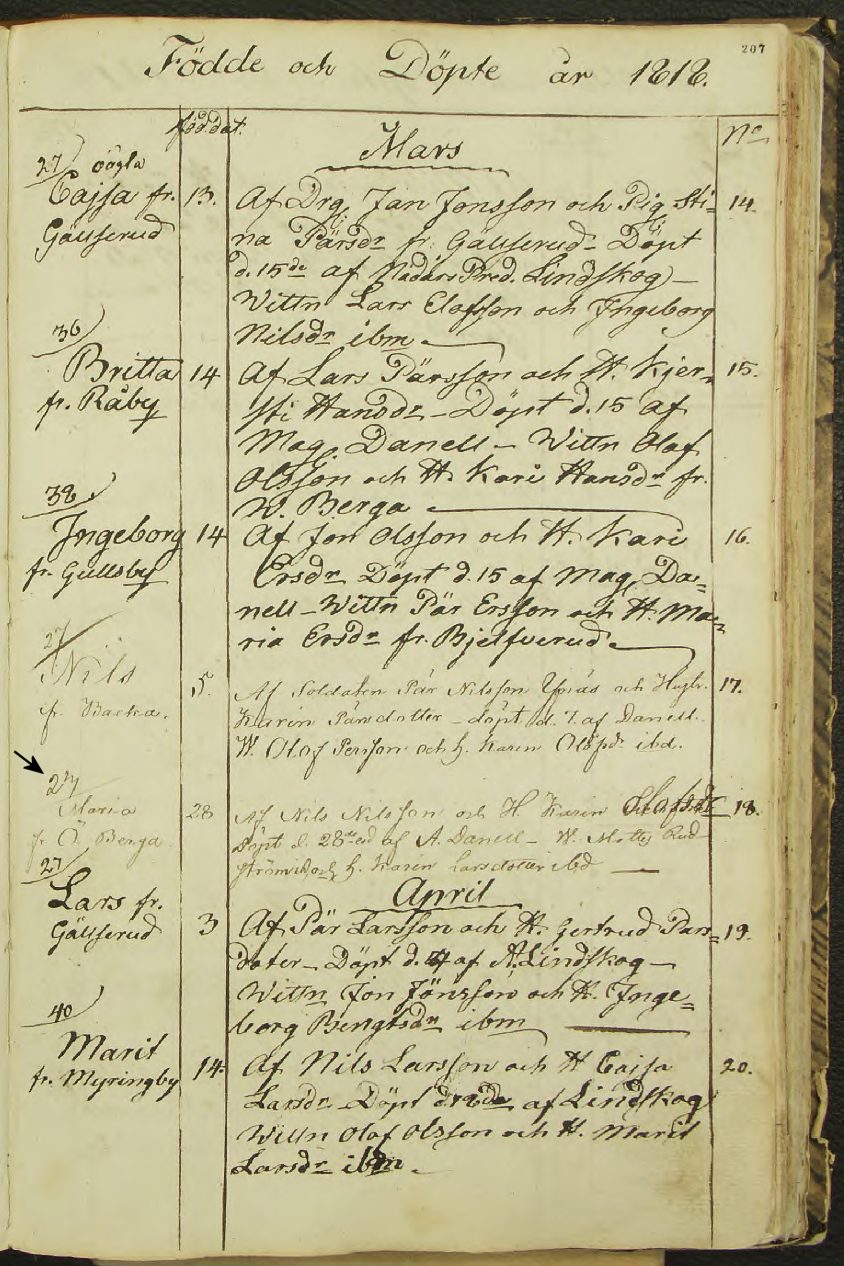 207
Födde och Döpte år 1818.
född at.
No
Mars
27 oägta
Cajsa fr. 13. Af Drg. Jan Jonsson och Pig. Sti= 14.
Gällserud na Pärsdr fr. Gällserud - Döpt
d. 15de af Lindskog -
Wittn Lars Elofsson och Ingeborg
Nilsdr ibm
36
Britta 14 Af Lars Pärsson och H. Kjer= 15.
fr. Råby sti Hansdr - Döpt d. 15 af
Mag. Danell - Wittn Olof
Olsson och H. Kari Hansdr fr.
W. Berga
38
Ingeborg 14 Af Jon Olsson och H. Kari 16.
fr. Gullsby Ersdr Döpt d. 15 af Mag. Da=
nell - Wittn Pär Ersson och H. Ma=
ria Ersdr fr. Bjelfverud
27
Nils 5. Af Soldaten Pär Nilsson och 17.
fr. Backa. Karin Pärsdotter - döpt d. 7. af Danell.
W. Olof Persson och H. Karin ibd.
27
Maria 28 Af Nils Nilsson och H Karin Olofsdr 18.
fr Ö Berga Döpt d. 28 af A. Danell - W.
och H. Karin Larsdotter ibd
April
27
Lars fr. 3 Af Pär Larsson och H. Gertrud Pärs= 19.
Gällserud doter - Döpt d. 4 af A. Lindskog -
Wittn Jon Jönsson och H. Inge=
borg Bengtsdr ibm
40
Marit 14. Af Nils Larsson och H Cajsa 20.
fr. Myringby Larsdr Döpt af Lindskog
Wittn Olof Olsson och H. Marit
Larsdr ibm